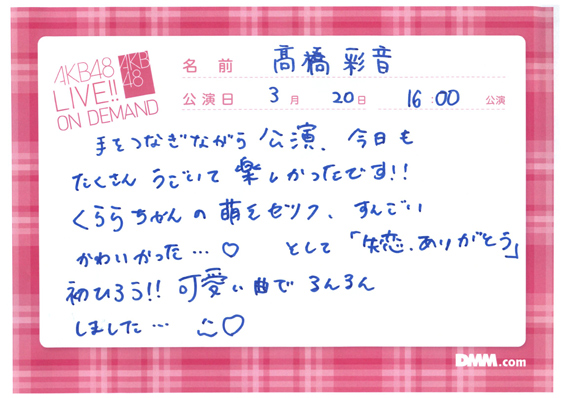 AKB48
LIVE!!
ON DEMAND
AKB
48
名前 髙橋彩音
公演日 3月 20日 16:00 公演
手をつなぎながら公演、今日も
たくさんうごいて楽しかったです!!
くららちゃんの萌えセリフ、すんごい
かわいかった…♡ そして「失恋、ありがとう」
初ひろう!! 可愛い曲でるんるん
しました…♡
DMM.com